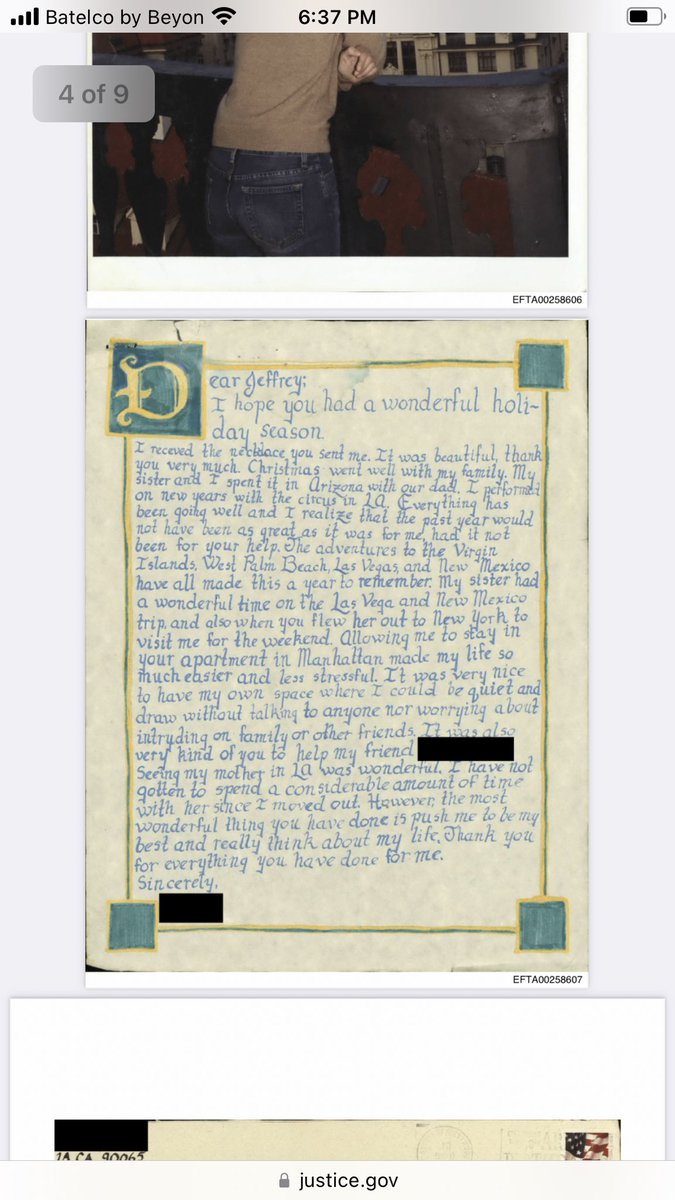 Batelco by Beyon
6:37 PM
4 of 9
EFTA00258606
Dear Jeffrey;
I hope you had a wonderful holi-
day season.
I receved the necklace you sent me. It was beautiful, thank
you very much. Christmas went well with my family. My
sister and I spent it in Arizona with our dad. I performed
on new years with the circus in LA. Everything has
been going well and I realize that the past year would
not have been as great as it was for me, had it not
been for your help. The adventures to the Virgin
Islands, West Palm Beach, Las Vegas, and New Mexico
have all made this a year to remember. My sister had
a wonderful time on the Las Vega and New Mexico
trip and also when you flew her out to New York to
visit me for the weekend. Allowing me to stay in
your apartment in Manhattan made my life so
much easier and less stressful. It was very nice
to have my own space where I could be quiet and
draw without talking to anyone nor worrying about
intryding on family or other friends. It was also
very kind of you to help my friend
Seeing my mother in LA was wonderful. I have not
gotten to spend a considerable amount of time
with her since I moved out. However, the most
wonderful thing you have done is push me to be my
best and really think about my life. Thank you
for everything you have done for me.
Sincerely,
EFTA00258607
LA CA 90065
justice.gov